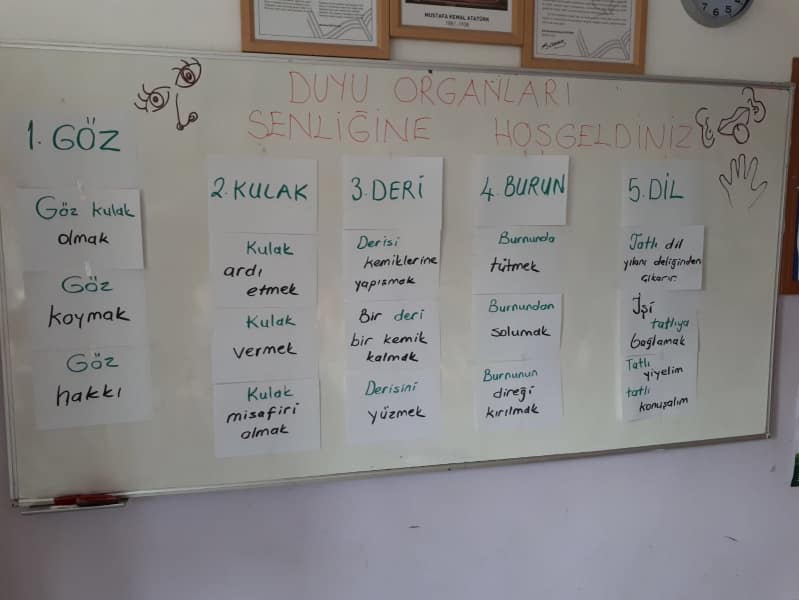 MUSTAFA KEMAL ATATÜRK
1881-1938
DUYU ORGANLARI
ŞENLİĞİNE HOŞGELDİNİZ
1. GÖZ
Göz kulak
olmak
Göz
koymak
Göz
hakkı
2. KULAK
Kulak
ardı
etmek
Kulak
vermek
Kulak
misafiri
olmak
3. DERİ
Derisi
kemiklerine
yapışmak
Bir deri
bir kemik
kalmak
Derisini
yüzmek
4. BURUN
Burnunda
tütmek
Burnundan
solumak
Burnunun
direği
kırılmak
5. DİL
Tatlı dil
yılanı deliğinden
çıkarır.
İşi
tatlıya
bağlamak
Tatlı
yiyelim
tatlı
konuşalım